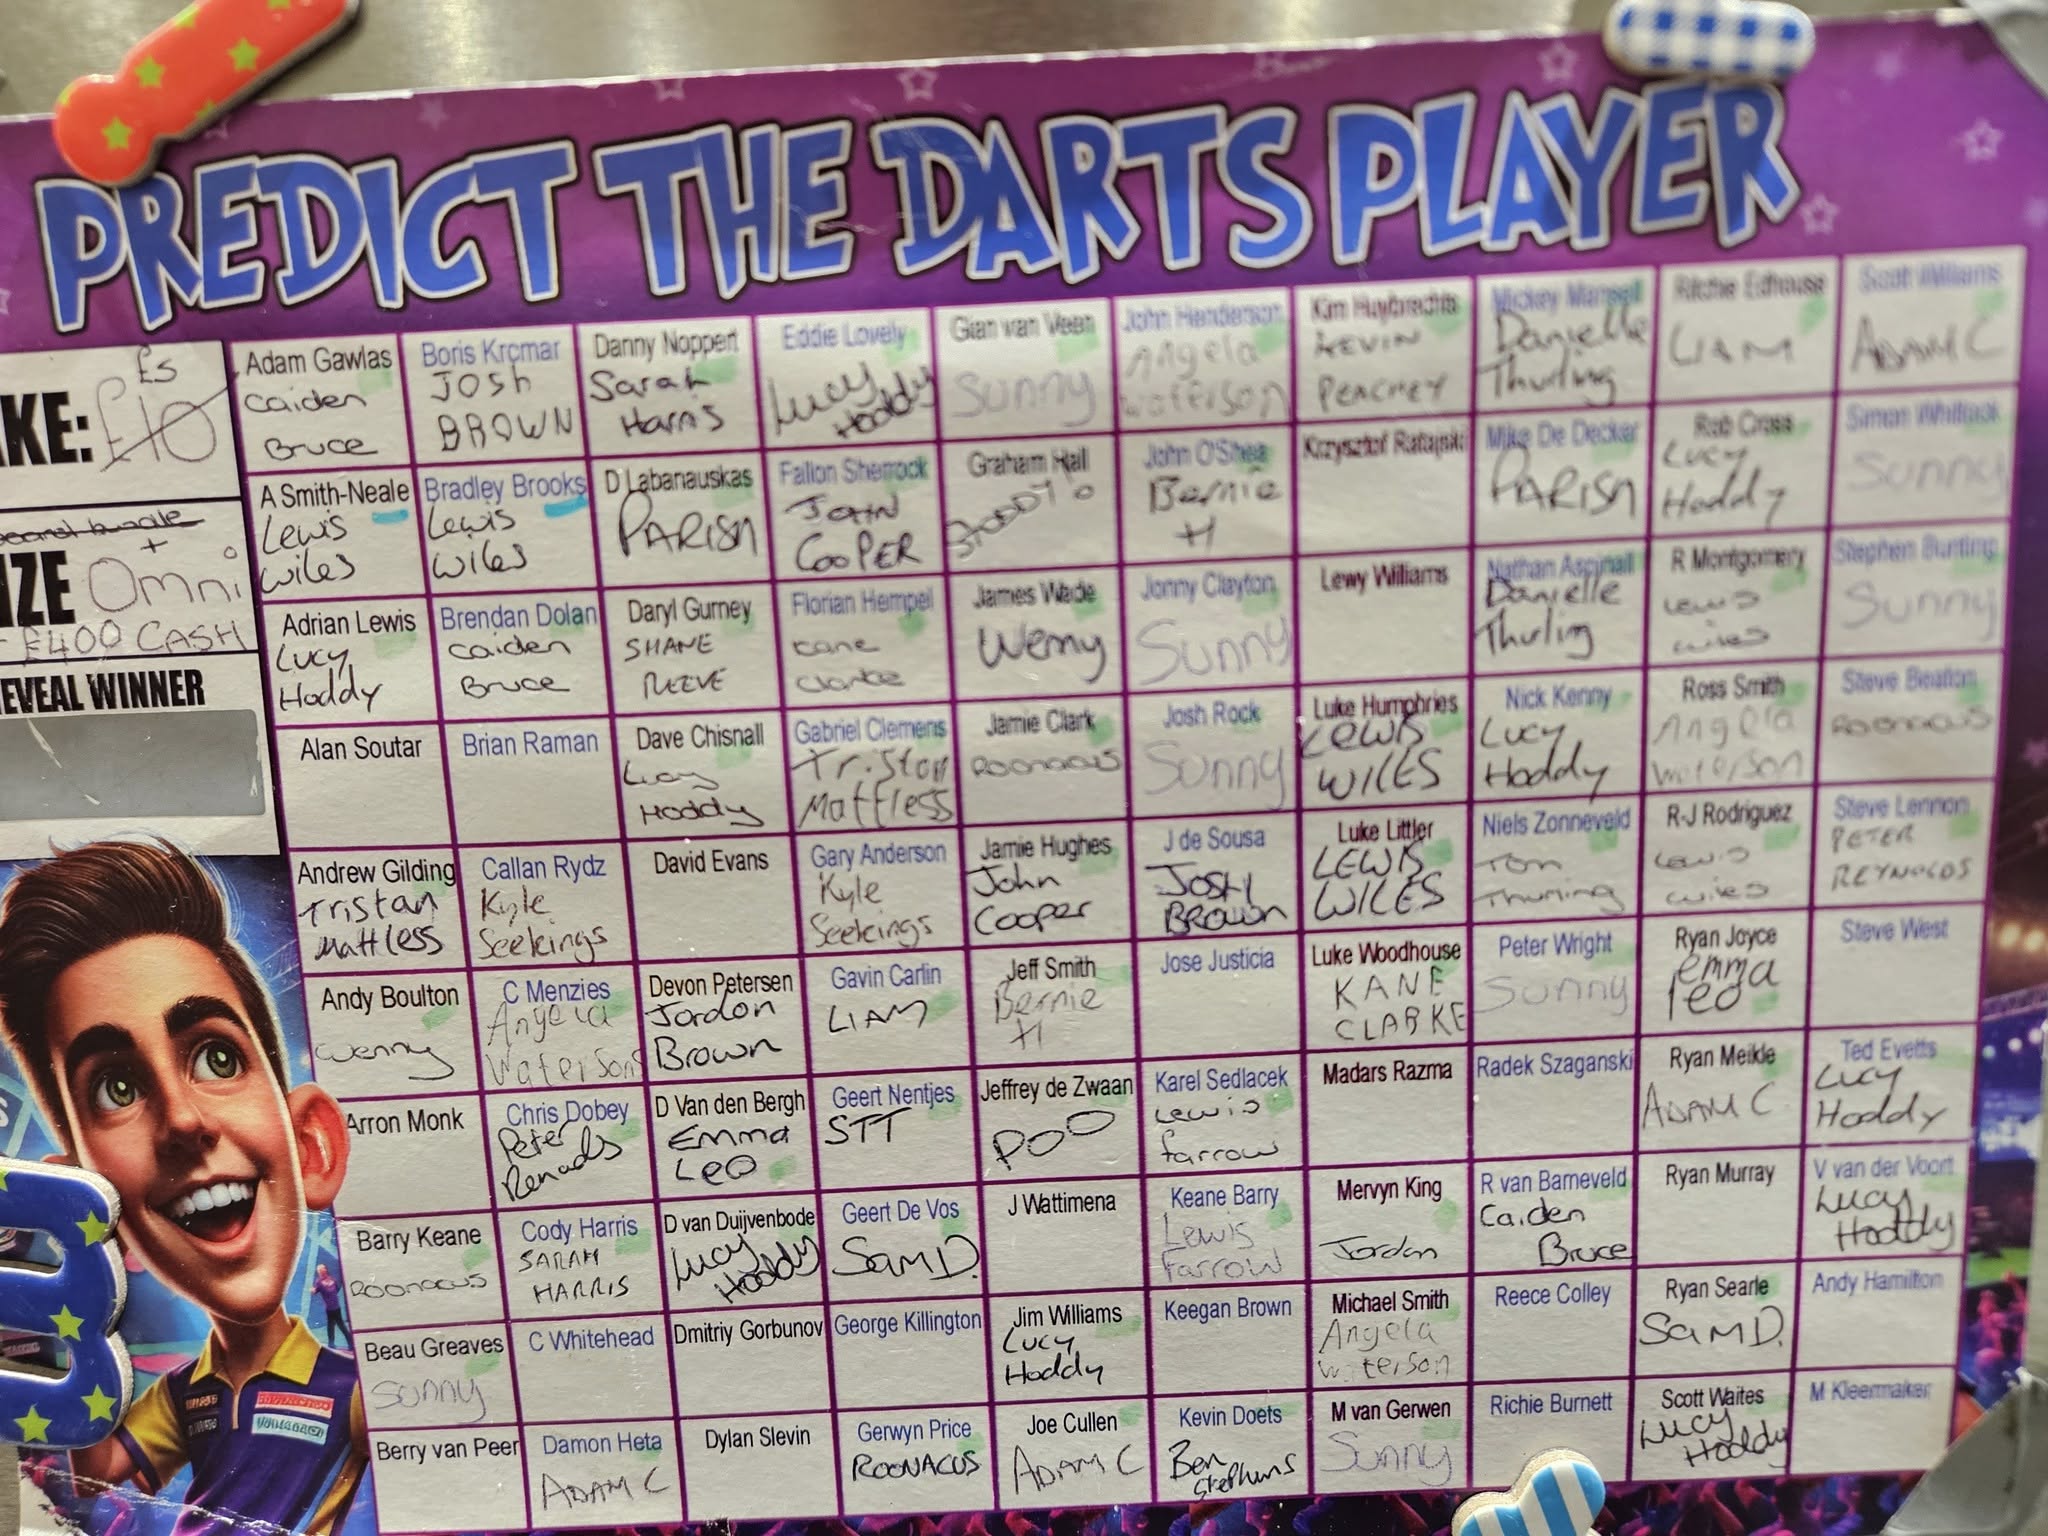 PREDICT THE DARTS PLAYER
KE: £10 £5
+
ZE Omni
£400 CASH
EVEAL WINNER
Adam Gawlas
Caiden
Bruce
Boris Krcmar
JOSH
BROWN
Danny Noppert
Sarah
Harris
Eddie Lovely
Lucy
Hoddy
Gian van Veen
Sunny
John Henderson
Angela
Waterson
Kim Huybrechts
KEVIN
PEACHEY
Mickey Mansell
Danielle
Thurling
Ritchie Edhouse
LIAM
Scott Williams
ADAM C
A Smith-Neale
Lewis
Wiles
Bradley Brooks
Lewis
Wiles
D Labanauskas
PARISH
Fallon Sherrock
JOHN
COOPER
Graham Hall
John O'Shea
Bernie
H
Krzysztof Ratajski
Mike De Decker
PARISH
Rob Cross
Lucy
Hoddy
Simon Whitlock
Sunny
Adrian Lewis
Lucy
Hoddy
Brendan Dolan
Caiden
Bruce
Daryl Gurney
SHANE
REEVE
Florian Hempel
Kane
Clarke
James Wade
Wenny
Jonny Clayton
Sunny
Lewy Williams
Nathan Aspinall
Danielle
Thurling
R Montgomery
Lewis
Wiles
Stephen Bunting
Sunny
Alan Soutar
Brian Raman
Dave Chisnall
Lucy
Hoddy
Gabriel Clemens
Tristan
Mattless
Jamie Clark
ROONACUS
Josh Rock
Sunny
Luke Humphries
LEWIS
WILES
Nick Kenny
Lucy
Hoddy
Ross Smith
Angela
Waterson
Steve Beaton
ROONACUS
Andrew Gilding
Tristan
Mattless
Callan Rydz
Kyle
Seekings
David Evans
Gary Anderson
Kyle
Seekings
Jamie Hughes
John
Cooper
J de Sousa
JOSH
BROWN
Luke Littler
LEWIS
WILES
Niels Zonneveld
Tom
Thurling
R-J Rodriguez
Lewis
Wiles
Steve Lennon
PETER
REYNOLDS
Andy Boulton
Wenny
C Menzies
Angela
Waterson
Devon Petersen
Jordon
Brown
Gavin Carlin
LIAM
Jeff Smith
Bernie
H
Jose Justicia
Luke Woodhouse
KANE
CLARKE
Peter Wright
Sunny
Ryan Joyce
emma
leo
Steve West
Arron Monk
Chris Dobey
Peter
D Van den Bergh
Emma
Leo
Geert Nentjes
STT
Jeffrey de Zwaan
POO
Karel Sedlacek
Lewis
Farrow
Madars Razma
Radek Szaganski
Ryan Meikle
ADAM C
Ted Evetts
Lucy
Hoddy
Barry Keane
ROONACUS
Cody Harris
SARAH
HARRIS
D van Duijvenbode
Lucy
Hoddy
Geert De Vos
Sam D.
J Wattimena
Keane Barry
Lewis
Farrow
Mervyn King
Jordon
R van Barneveld
Caiden
Bruce
Ryan Murray
V van der Voort
Lucy
Hoddy
Beau Greaves
Sunny
C Whitehead
Dmitriy Gorbunov
George Killington
Jim Williams
Lucy
Hoddy
Keegan Brown
Michael Smith
Angela
Waterson
Reece Colley
Ryan Searle
Sam D.
Andy Hamilton
Berry van Peer
Damon Heta
ADAM C
Dylan Slevin
Gerwyn Price
ROONACUS
Joe Cullen
ADAM C
Kevin Doets
Ben
Stephens
M van Gerwen
Sunny
Richie Burnett
Scott Waites
Lucy
Hoddy
M Kleermaker